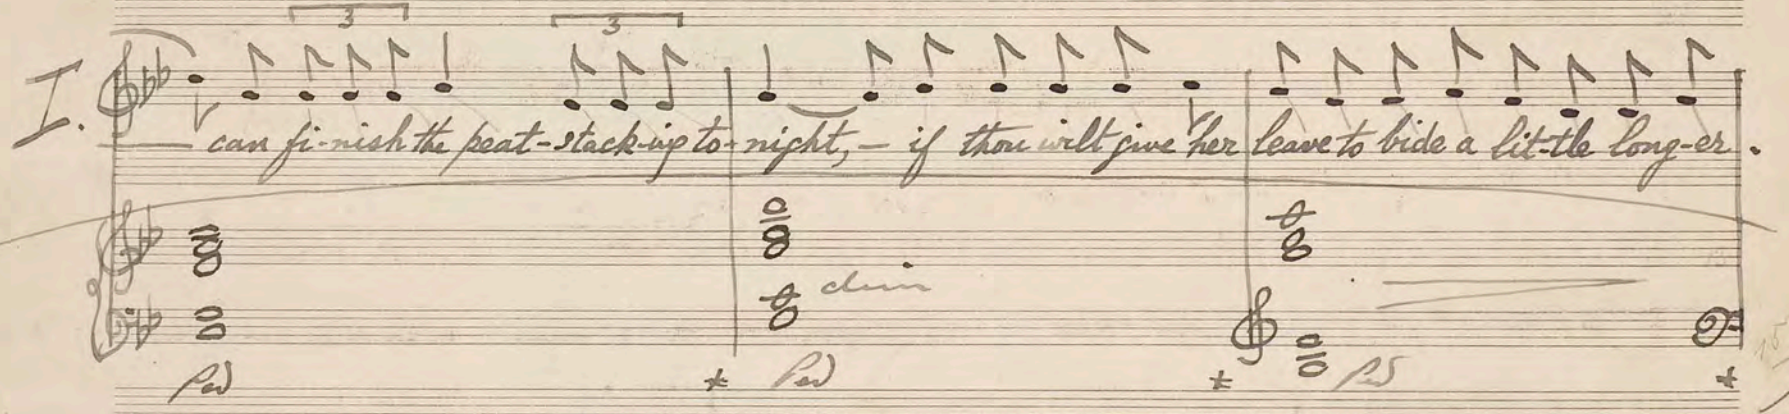 3 3
I.
can fi-nish the peat-stack-up to-night,- if thou wilt give her leave to bide a lit-tle long-er.
dim
Ped * Ped * Ped *